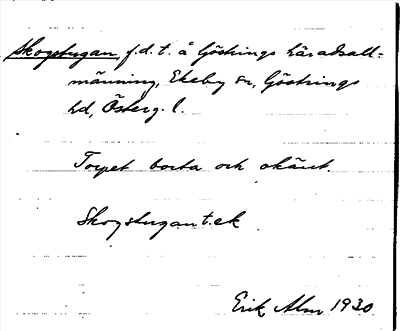 Skogstugan, f.d. t. å Göstrings häradsall-
männing, Ekeby sn, Göstrings
hd, Österg. l.
Torpet borta och okänt.
Skogstugan t. ek
Erik Alm 1930